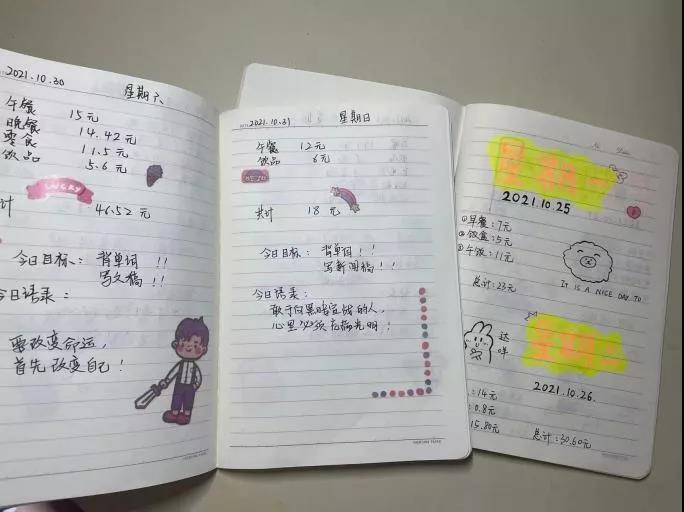 2021.10.30
星期六
午餐 15元
晚餐 14.42元
零食 11.5元
饮品 5.6元
LUCKY
计 46.52元
今日目标：背单词！！
写文稿！！
今日语录：
要改变命运，
首先改变自己！
2021.10.31 星期日
午餐 12元
饮品 6元
共计 18元
今日目标：背单词！！
写新闻稿！！
今日语录：
敢于向黑暗宣战的人，
心里必须充满光明！
星期一
2021.10.25
①早餐：7元
②饭盒：5元
③午饭：11元
总计：23元
IT IS A NICE DAY TO
达
咩
星期二
2021.10.26
：14元
：0.8元
15.80元
总计：30.60元